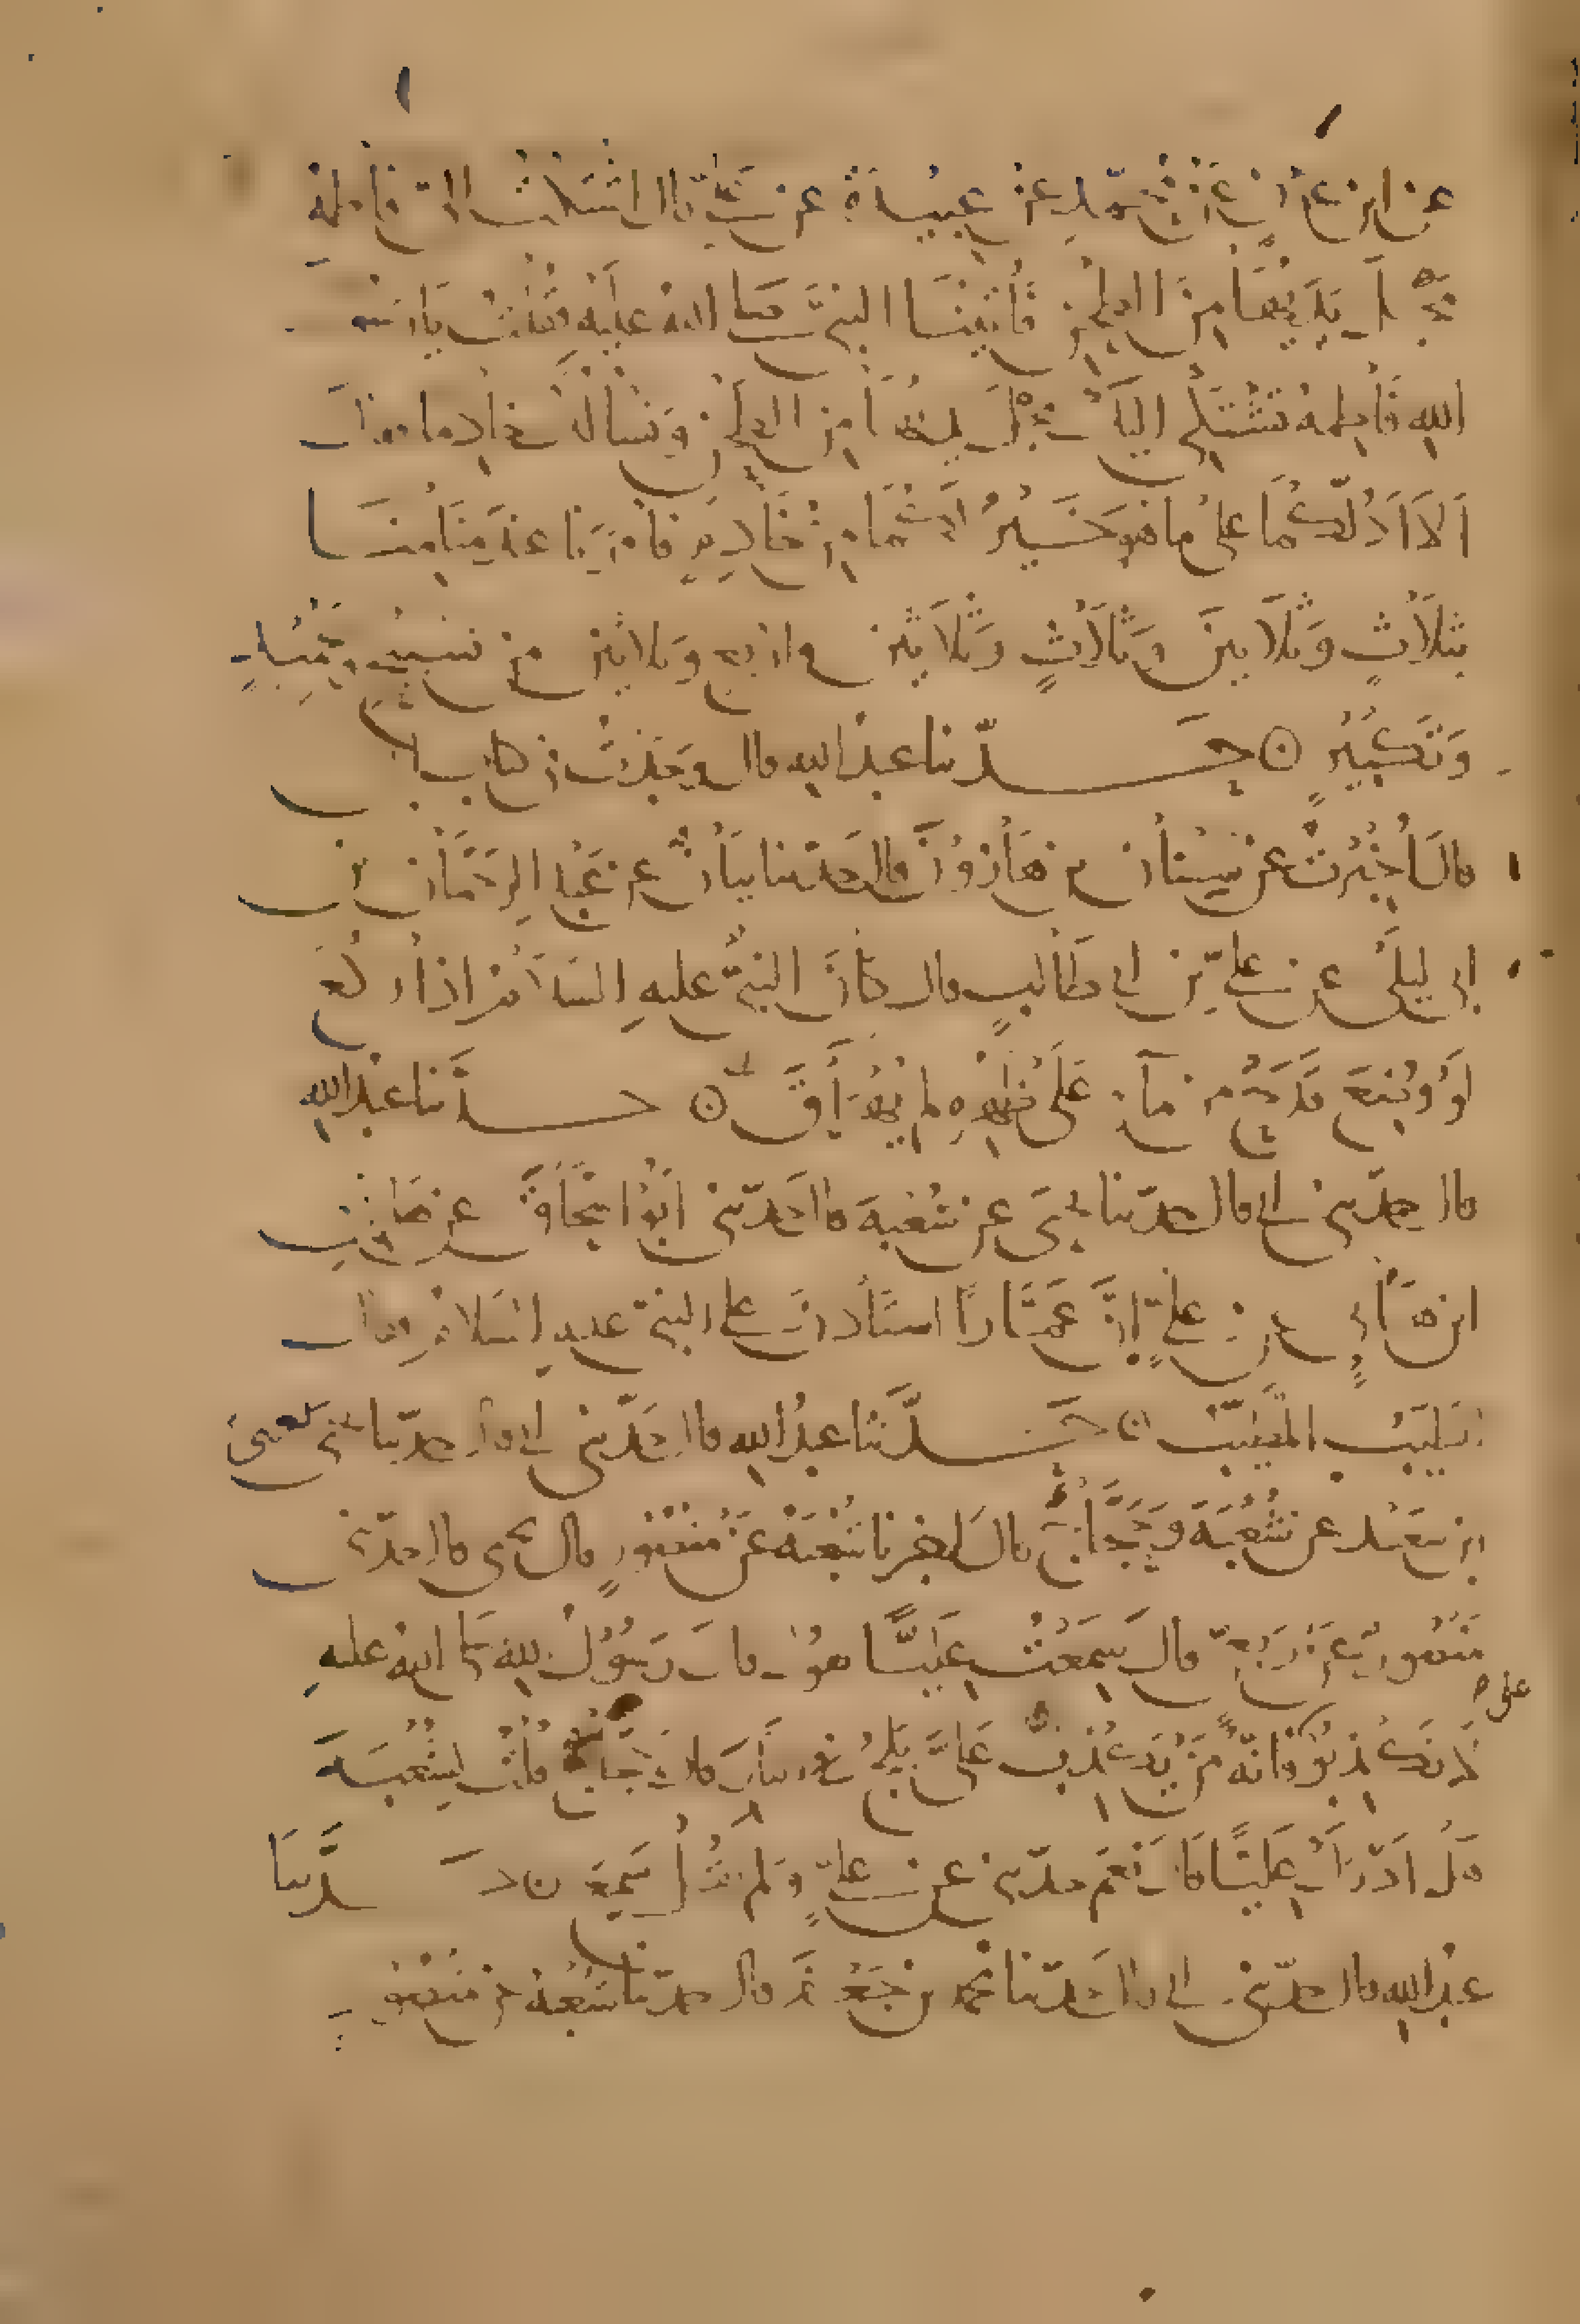 عن ابن عون عن محمد عن عبيدة عن علي قال اشتكت الي فاطمة
مجل يديها من الطحن فأتينا النبي صلى الله عليه فقلت يا رسول
الله فاطمة تشتكي اليك مجل يديها من الطحن وتسألك خادما فقال
ألا أدلكما على ما هو خير لكما من خادم فأمرنا عند منامنا
بثلاث وثلاثين وثلاث وثلاثين واربع وثلاثين من تسبيح وتحميد
وتكبير ۞ حدثنا عبد الله قال وجدت في كتاب أبي
قال أخبرت عن سنان بن هارون قال حدثنا بيان عن عبد الرحمان بن
ابي ليلى عن علي بن ابي طالب قال كان النبي عليه السلام اذا ركع
لو وضع قدح من ماء على ظهره لم يهراق ۞ حدثنا عبد الله
قال حدثني ابي قال حدثنا يحيى عن شعبة قال حدثني ابو اسحاق عن هانئ
ابن هانئ عن علي ان عمارا استأذن على النبي عليه السلام فقال
الطيب المطيب ۞ حدثنا عبد الله قال حدثني ابي قال حدثنا يحيى يعني
ابن سعيد عن شعبة وحجاج قال اخبرنا شعبة عن منصور قال يحيى قال حدثني
منصور عن ربعي قال سمعت عليا يقول قال رسول الله صلى الله عليه
لا تكذبوا علي فانه من يكذب علي يلج النار قال حجاج قلت لشعبة
هل ادرك عليا قال نعم حدثني عن علي ولم يقل سمع ۞ حدثنا
عبد الله قال حدثني ابي قال حدثنا محمد بن جعفر قال حدثنا شعبة عن منصور